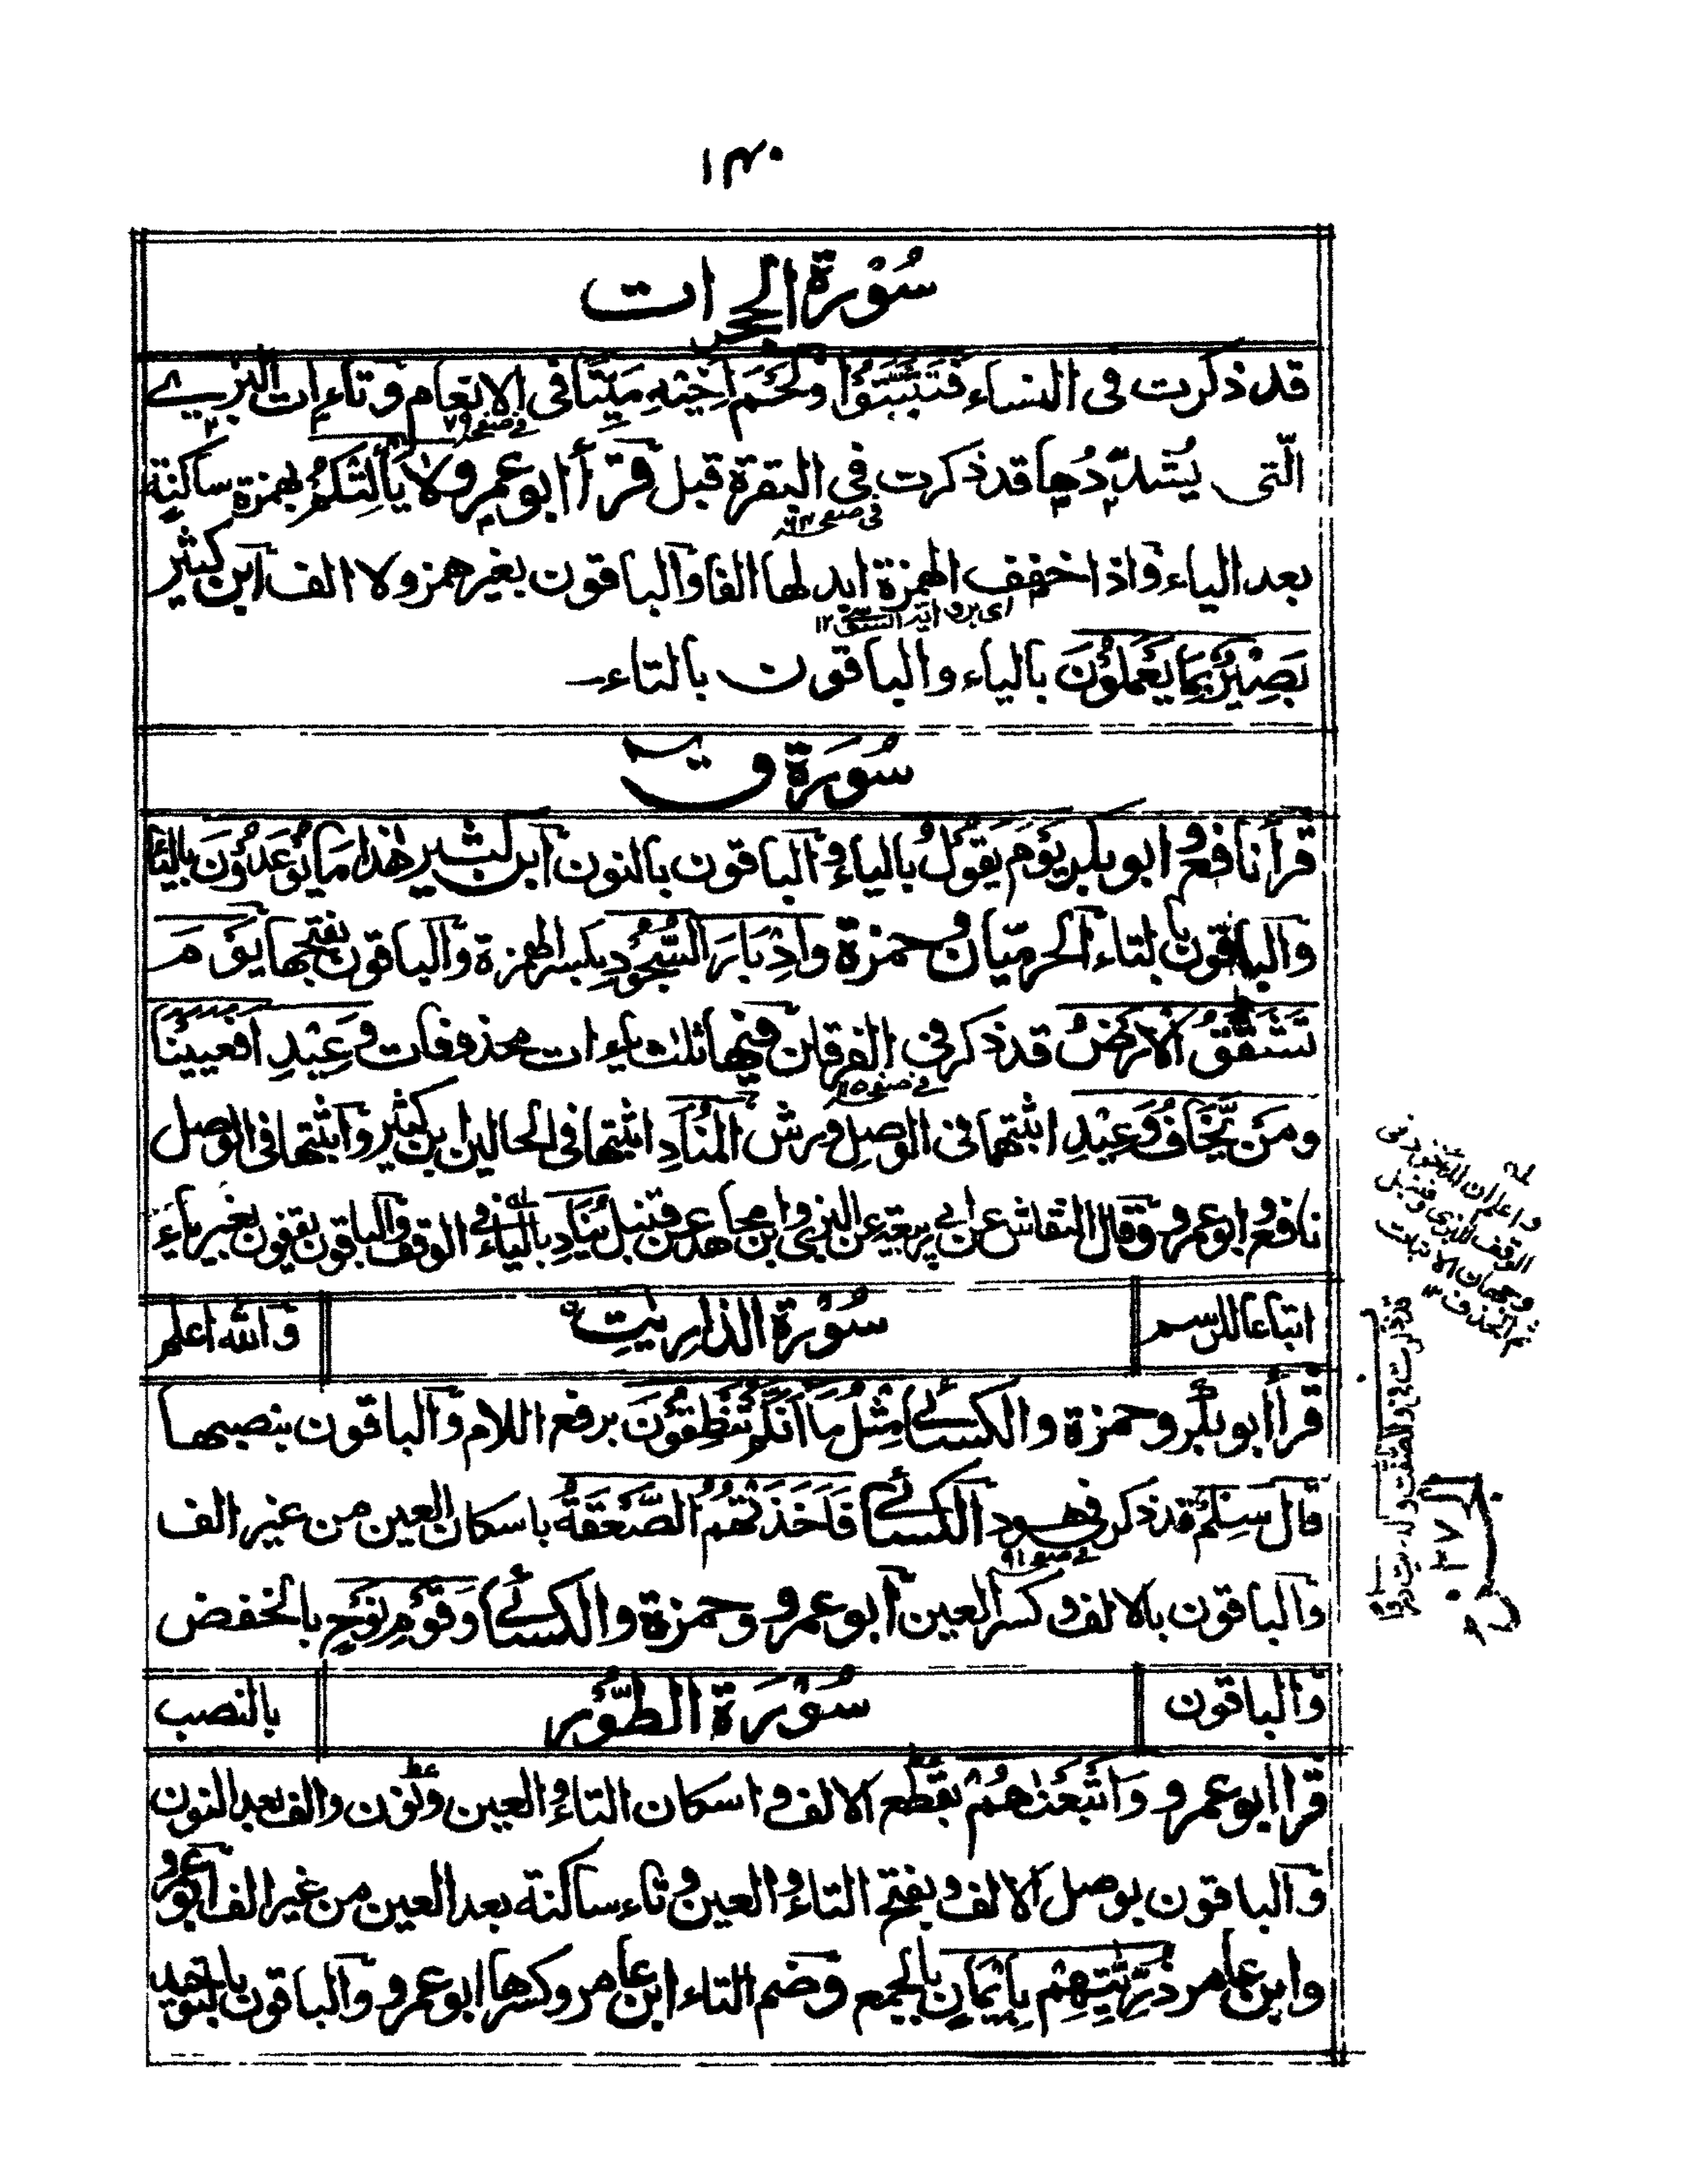 ۱۴۰
سُوْرَةُ الحجرات
قد ذكرت فى النساء فَتَثَبَّتُوْا ولَحْمَ اَخِيْهِ مَيْتًا فى الانعام وتاءات البزى
فى صفحه ۷۹
الّتى يُشدّدُها قد ذكرت فى البقرة قبل قرأ ابو عمرو لا يَأْلِتْكُمْ بهمزة ساكنة
فى صفحه ۶۳
بعد الياء واذا خفف الهمزة ابدلها الفا والباقون بغير همز ولا الف ابن كثير
اى برواية السوسى ۱۲
بَصِيْرٌ بِمَا يَعْمَلُوْنَ بالياء والباقون بالتاء
سُوْرَة قٓ
قرأ نافع وابوبكر يَوْمَ يَقُوْلُ بالياء والباقون بالنون ابن كثير هٰذا مَا يُوْعَدُوْنَ بالياء
والباقون بالتاء الحرميّان وحمزة وَاِدْبَارَ السُّجُوْدِ بكسر الهمزة والباقون بفتحها يَوْمَ
تَشَقَّقُ الْاَرْضُ قد ذكر فى الفرقان فيها ثلث ياءات محذوفات وَعِيْدِ اَفَعَيِيْنَا
فى صفحه
ومَنْ يَّخَافُ وَعِيْدِ اثبتهما فى الوصل ورش المُنَادِ اثبتها فى الحالين ابن كثير واثبتها فى الوصل
نافع وابو عمرو وقال النقاش عن ابى ربيعة عن البزى وابن مجاهد عن قنبل يُنَادِ بالياء فى الوقف والباقون يقفون بغير ياء
اتباعا للرسم
سُوْرَة الذاريٰتِ
والله اعلم
قرأ ابوبكر وحمزة والكسائى مِثْلُ مَا اَنَّكُمْ تَنْطِقُوْنَ برفع اللام والباقون بنصبها
قال سِلْمٌ قد ذكر فى هود الكسائى فَاَخَذَتْهُمُ الصَّعْقَةُ باسكان العين من غير الف
فى صفحه ۹۱
والباقون بالالف وكسر العين ابو عمرو وحمزة والكسائى وَقَوْمِ نُوْحٍ بالخفض
والباقون
سُوْرَة الطُّوْر
بالنصب
قرأ ابو عمرو وَاَتْبَعْنٰهُمْ بقطع الالف واسكان التاء والعين ونون والف بعد النون
والباقون بوصل الالف وبفتح التاء والعين وتاء ساكنة بعد العين من غير الف ابو عمرو
وابن عامر ذُرِّيّٰتِهِمْ بِاِيْمَانٍ بالجمع وضم التاء ابن عامر وكسرها ابو عمرو والباقون بالتوحيد
واعلم ان المأخوذ فى
الوقف للبزى وقنبل
وجهان الاثبات
ثم الحذف